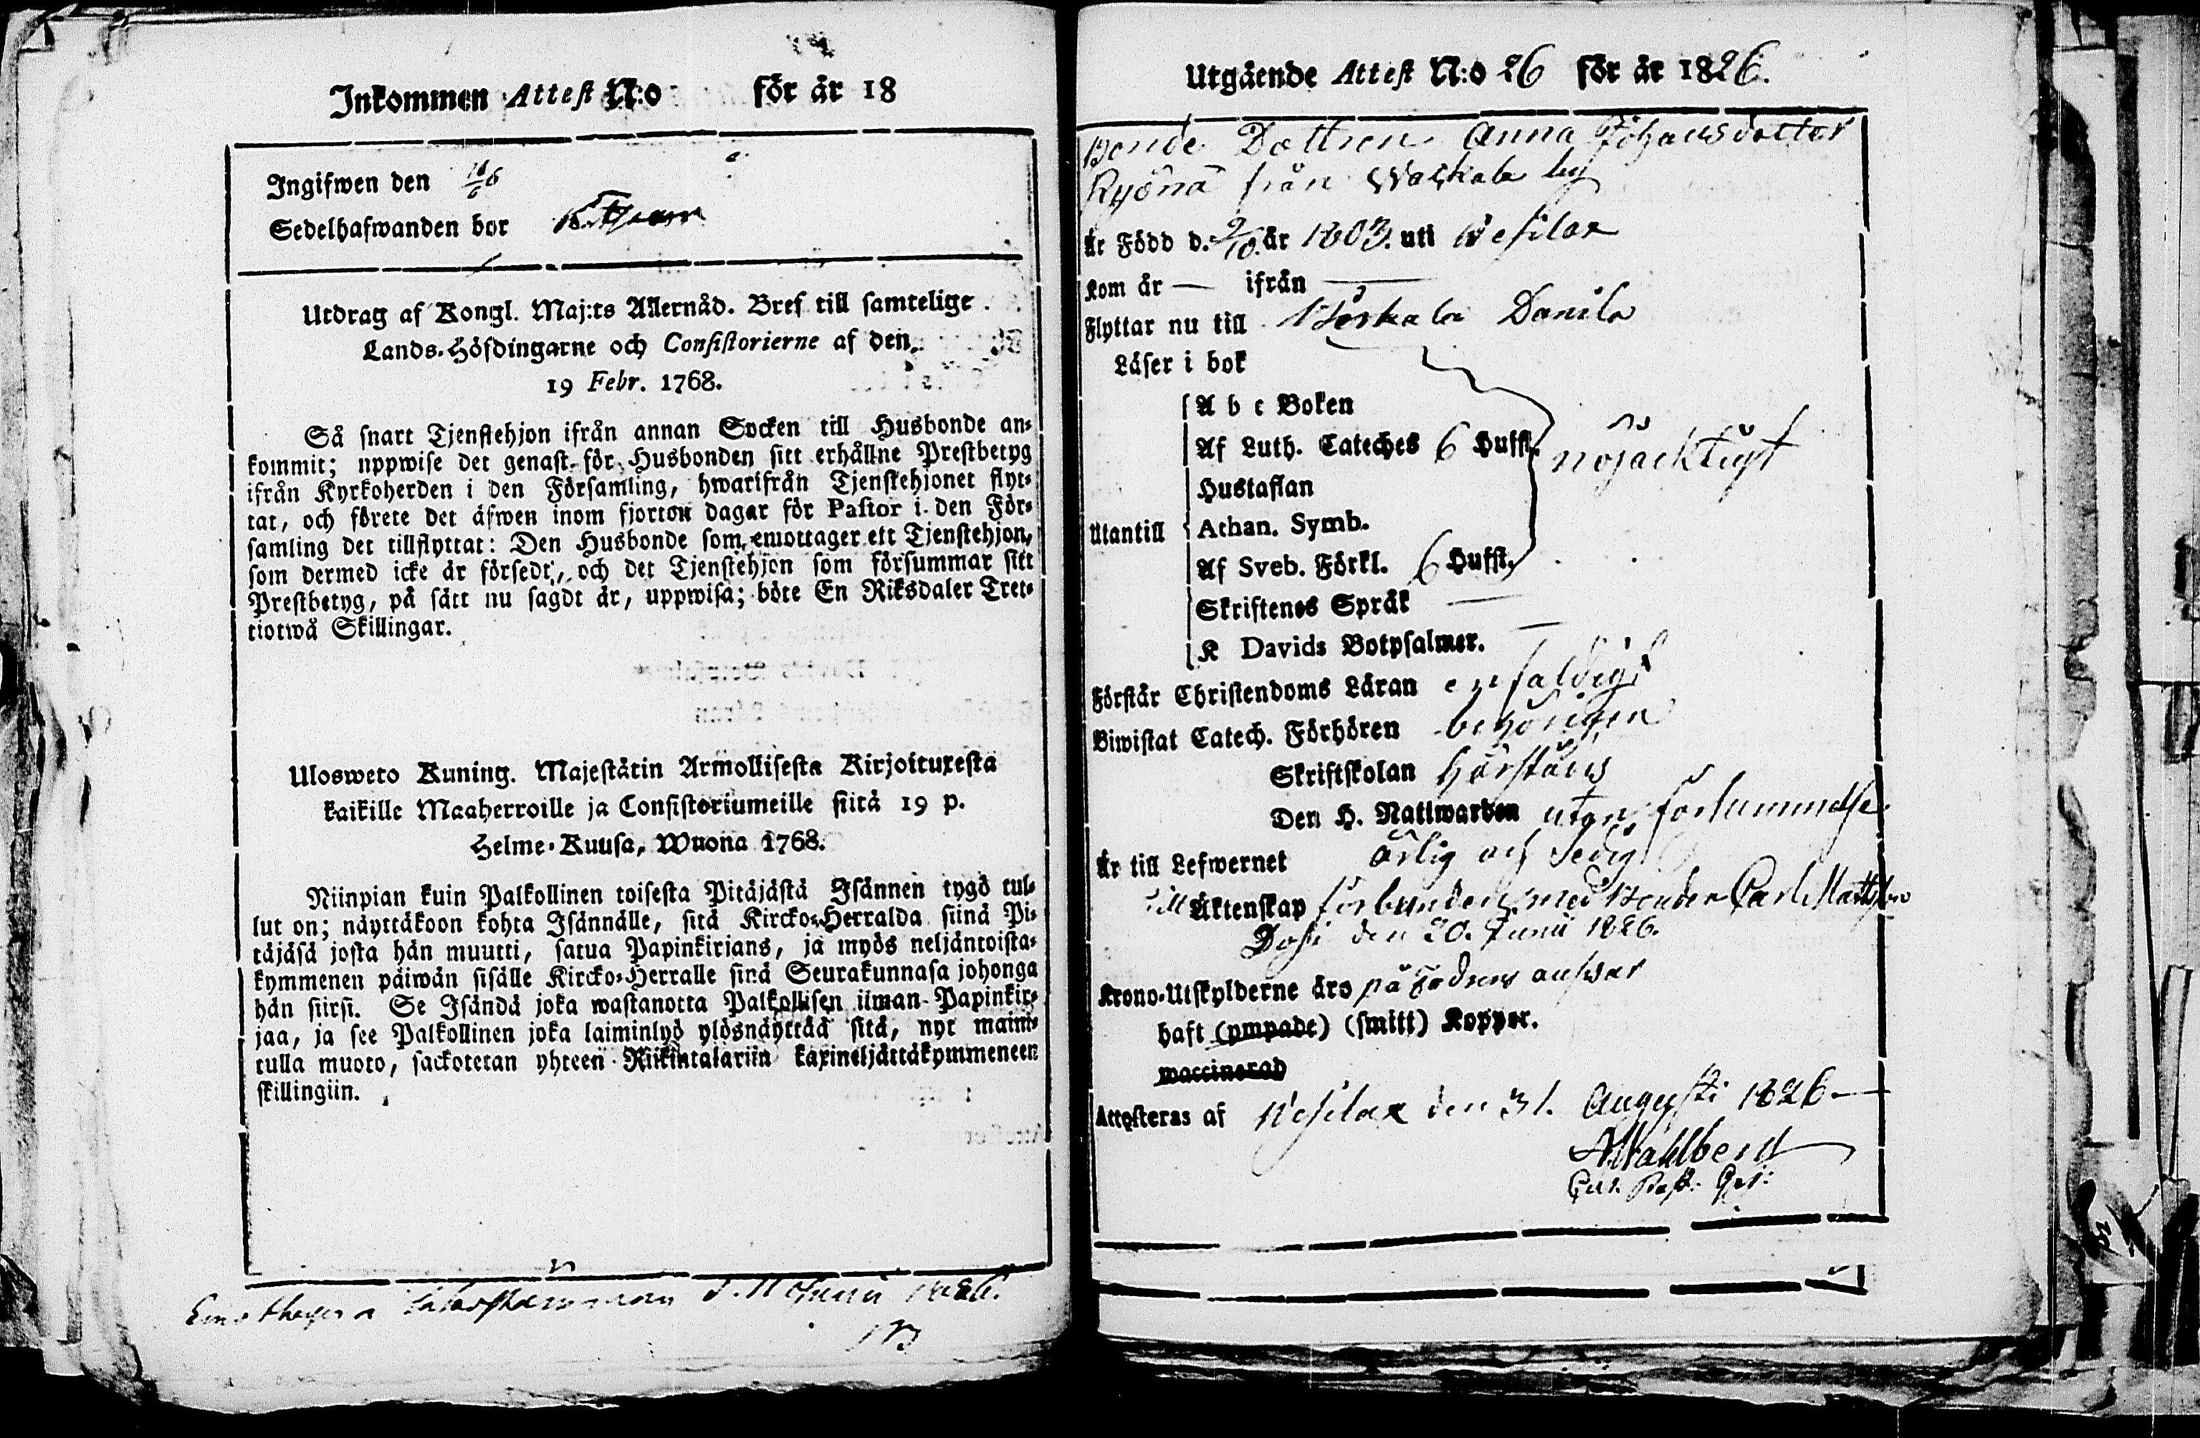 Inkommen Attest N:o för år 18
Ingifwen den
Sedelhafwanden bor
Utdrag af Kongl. Maj:ts Allernåd. Bref till samtelige
Lands-Höfdingarne och Consistorierne af den
19 Febr. 1768.
Så snart Tjenstehjon ifrån annan Socken till Husbonde an-
kommit; uppwise det genast för Husbonden sitt erhållne Prestbetyg
ifrån Kyrkoherden i den Församling, hwarifrån Tjenstehjonet flyt-
tat, och förete det äfwen inom fjorton dagar för Pastor i den För-
samling det tillflyttat: Den Husbonde som emottager ett Tjenstehjon,
som dermed icke är försedt, och det Tjenstehjon som försummar sitt
Prestbetyg, på sätt nu sagdt är, uppwisa; böte En Riksdaler Tret-
tiotwå Skillingar.
Ulosweto Kuning. Majestätin Armollisesta Kirjoituxesta
kaikille Maaherroille ja Consistoriumeille siitä 19 p.
Helme-Kuusa, Wuona 1768.
Niinpian kuin Palkollinen toisesta Pitäjästä Isännen tygö tul-
lut on; näyttäkoon kohta Isännälle, sitä Kircko-Herralda siinä Pi-
täjäsä josta hän muutti, satua Papinkirjans, ja myös neljäntoista-
kymmenen päiwän sisälle Kircko-Herralle sinä Seurakunnasa johonga
hän siirsi. Se Isändä joka wastanotta Palkollisen ilman Papinkir-
jaa, ja see Palkollinen joka laiminlyö ylösnäyttää sitä, nyt maini-
tulla muoto, sackotetan yhteen Riikintalariin kaxineljättäkymmeneen
skillingiin.
d. 11 Junii 1826.
Utgående Attest N:o 26 för år 1826.
Bonde Dottren Anna Johansdotter
Ryönä från Waskala by
Är Född d. 9/10. år 1803. uti Wesilax
Kom år — ifrån —
Flyttar nu till Danila
Läser i bok
A b c Boken
Af Luth. Cateches 6 Hufst.
nöjacktigt
Hustaflan
Utantill
Athan. Symb.
Af Sveb. Förkl. 6 Hufst.
Skriftenes Språk —
K Davids Botpsalmer. —
Förstår Christendoms Läran enfaldigt
Biwistat Catech. Förhören behörigen
Skriftskolan
Den H. Nattwarden utan försummelse
Är till Lefwernet ärlig och sedig
Till Äktenskap förbunden med Bonden Carl Mattsson
den 20. Junii 1826.
Krono-Utskylderne äro på Fadrens answar
haft (ympade) (smitt) Koppor.
waccinerad
Attesteras af Wesilax den 31. Augusti 1826 —
Wahlberg